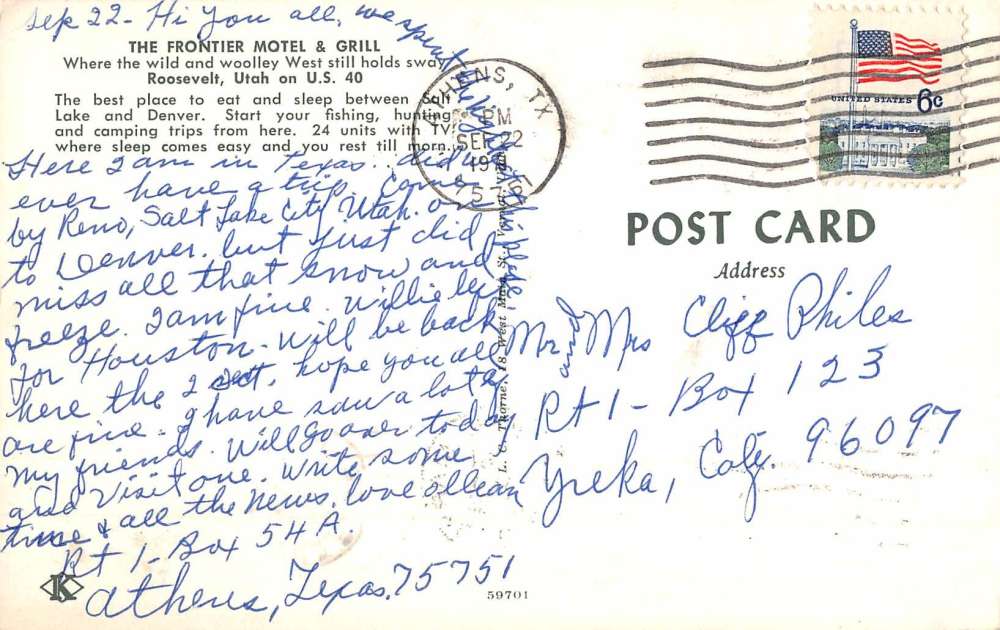 Sep 22 - Hi You all, we spent
the night at this place.
THE FRONTIER MOTEL & GRILL
Where the wild and woolley West still holds sway
Roosevelt, Utah on U.S. 40
The best place to eat and sleep between Salt
Lake and Denver. Start your fishing, hunting
and camping trips from here. 24 units with TV
where sleep comes easy and you rest till morn.
Here I am in Texas. did we
ever have a trip. Came
by Reno, Salt Lake City Utah. on
to Denver. but just did
miss all that snow and
freeze. I am fine. Willie left
for Houston. Will be back
here the 2 oct. hope you all
are fine. I have saw a lot of
my friends. Will go over today
and visit one. Write some
time & all the News. love ollean
Rt 1 - Box 54 A.
Athens, Texas, 75751
K
59701
L. C. Thorne, 18 West Main St.,
ATHENS, TX
PM
SEP 22
19
757
UNITED STATES 6c
POST CARD
Address
Mr and Mrs Cliff Philes
Rt 1 - Box 123
Yreka, Calif. 96097